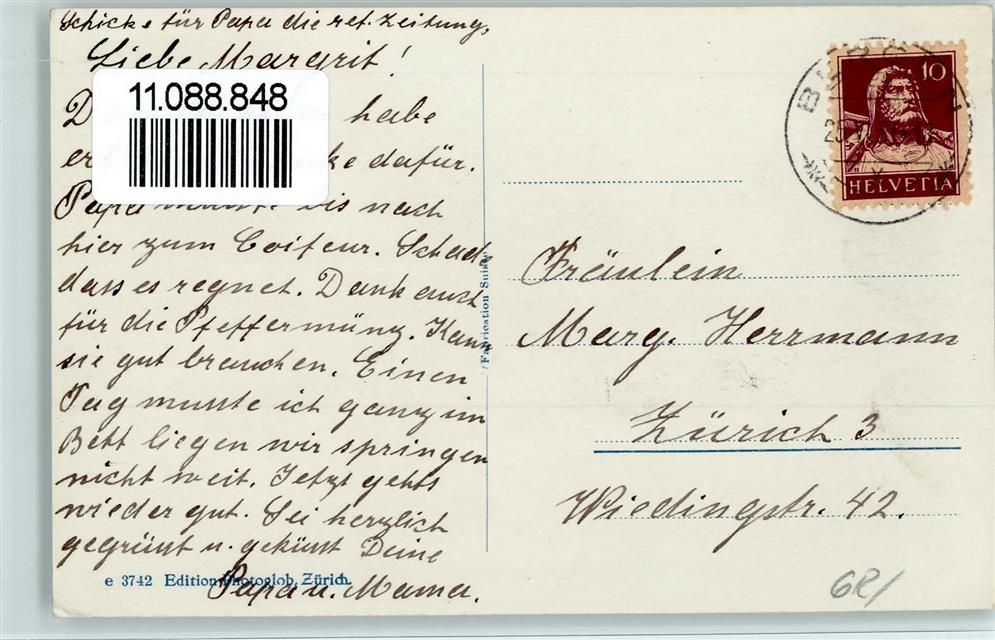 Schicke für Papa die ref. Zeitung.
Liebe Margrit!
11.088.848
D habe
er ke dafür.
Papa musste bis nach
hier zum Coifeur. Schade
dass es regnet. Dank auch
für die Pfeffermünz. Kann
sie gut brauchen. Einen
Tag musste ich ganz im
Bett liegen wir springen
nicht weit. Jetzt gehts
wieder gut. Sei herzlich
gegrüsst u. geküsst Deine
Papa u. Mama.
e 3742 Edition Photoglob, Zürich.
(Fabrication Suisse)
10
HELVETIA
Fräulein
Marg. Herrmann
Zürich 3
Wiedingstr. 42.